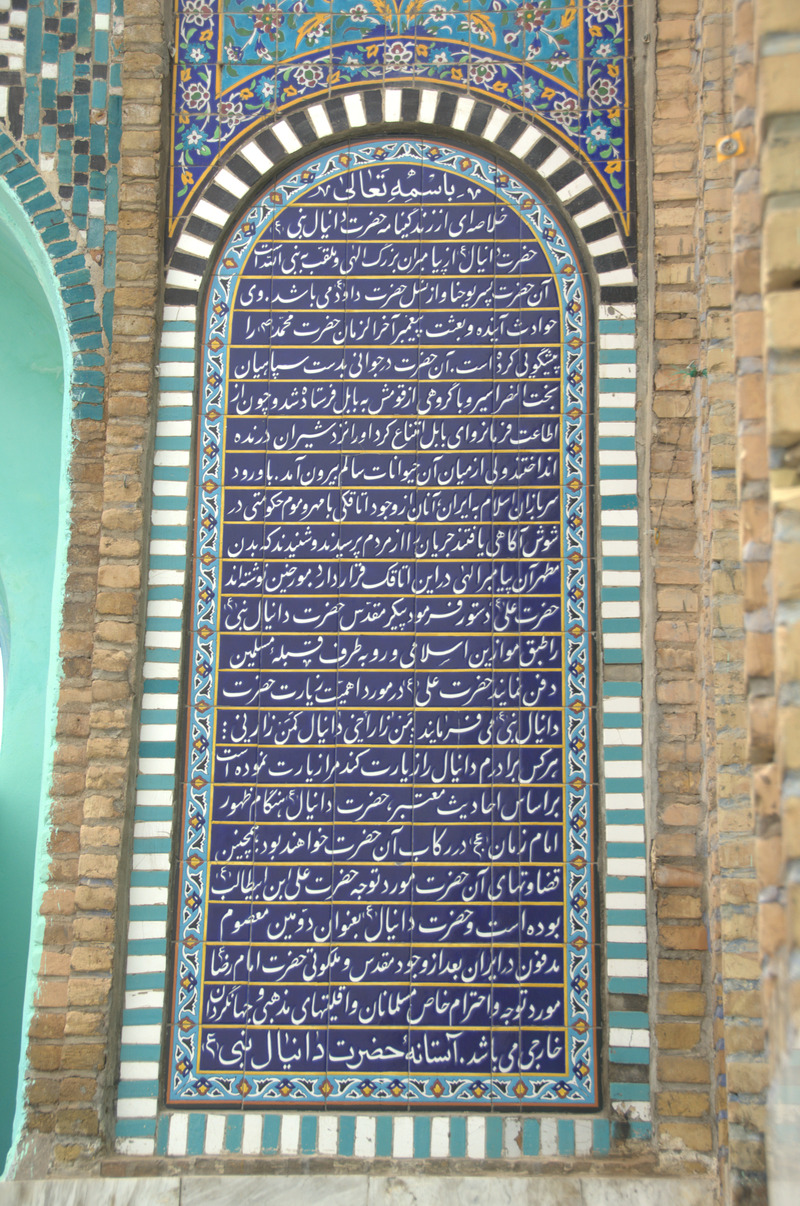 باسمه تعالی
خلاصه‌ای از زندگینامه حضرت دانیال نبی (ع)
حضرت دانیال (ع) از پیامبران بزرگ الهی و ملقب به نبی الله است
آن حضرت پسر یوحنا و از نسل حضرت داود (ع) می باشد. وی
حوادث آینده و بعثت پیغمبر آخرالزمان حضرت محمد (ص) را
پیشگوئی کرده است. آن حضرت در جوانی بدست سپاهیان
بخت النصر اسیر و با گروهی از قومش به بابل فرستاده شد و چون از
اطاعت فرمانروای بابل امتناع کرد او را نزد شیران درنده
انداختند ولی از میان آن حیوانات سالم بیرون آمد. با ورود
سربازان اسلام به ایران آنان از وجود اتاقکی با مهر و موم حکومتی در
شوش آگاهی یافتند جریان را از مردم پرسیدند و شنیدند که بدن
مطهر آن پیامبر الهی در این اتاقک قرار دارد. مورخین نوشته‌اند
حضرت علی (ع) دستور فرمود پیکر مقدس حضرت دانیال نبی (ع)
را طبق موازین اسلامی و رو به طرف قبله مسلمین
دفن نمایند حضرت علی (ع) در مورد اهمیت زیارت حضرت
دانیال نبی (ع) می فرمایند: من زار اخی دانیال کمن زارنی :
هر کس برادرم دانیال را زیارت کند مرا زیارت نموده است
بر اساس احادیث معتبر، حضرت دانیال (ع) هنگام ظهور
امام زمان (عج) در رکاب آن حضرت خواهند بود. همچنین
قضاوتهای آن حضرت مورد توجه حضرت علی ابن ابیطالب (ع)
بوده است و حضرت دانیال (ع) بعنوان دومین معصوم
مدفون در ایران بعد از وجود مقدس و ملکوتی حضرت امام رضا (ع)
مورد توجه و احترام خاص مسلمانان و اقلیتهای مذهبی و جهانگردان
خارجی می باشد. آستانه حضرت دانیال نبی (ع)